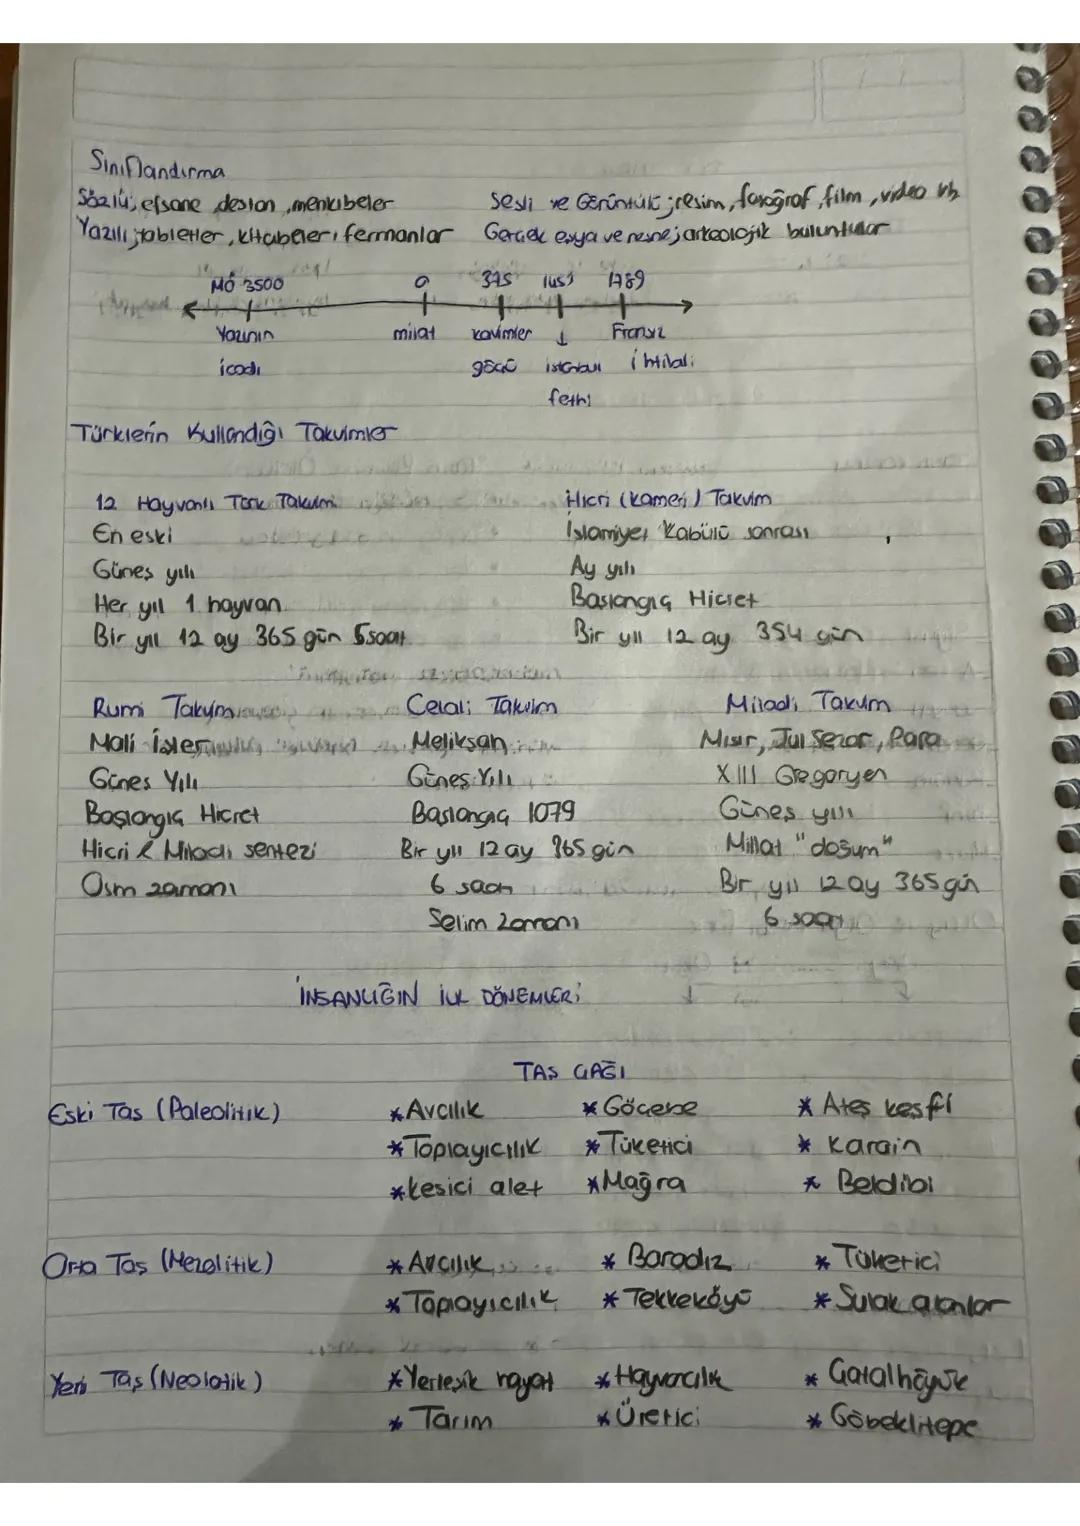 Sınıflandırma
Sözlü; efsane, destan, menkıbeler
Yazılı; tabletler, kitabeler, fermanlar
Sesli ve Görüntülü; resim, fotoğraf, film, video vb
Gerçek eşya ve nesne; arkeolojik buluntular
MÖ 3500 0 375 1453 1789
Yazının icadı
milat
kavimler göçü
istanbul fethi
Fransız ihtilali
Türklerin Kullandığı Takvimler
12 Hayvanlı Türk Takvimi
En eski
Güneş yılı
Her yıl 1 hayvan
Bir yıl 12 ay 365 gün 5 saat
Hicri (kameri) Takvim
İslamiyet Kabülü sonrası
Ay yılı
Başlangıç Hicret
Bir yıl 12 ay 354 gün
Rumi Takvim
Mali İşler
Güneş Yılı
Başlangıç Hicret
Hicri & Miladi sentezi
Osm zamanı
Celali Takvim
Melikşah
Güneş Yılı
Başlangıç 1079
Bir yıl 12 ay 365 gün
6 saat
Selim zamanı
Miladi Takvim
Mısır, Jul Sezar, Papa
XIII Gregoryen
Güneş yılı
Millat "doğum"
Bir yıl 12 ay 365 gün
6 saat
İNSANLIĞIN İLK DÖNEMLERİ
TAŞ ÇAĞI
Eski Taş (Paleolitik)
* Avcılık * Göçebe * Ateş keşfi
* Toplayıcılık * Tüketici * Karain
* kesici alet * Mağra * Beldibi
Orta Taş (Mezolitik)
* Avcılık * Baradız * Tüketici
* Toplayıcılık * Tekkeköyü * Sulak alanlar
Yeni Taş (Neolotik)
* Yerleşik hayat * Hayvacılık * Çatalhöyük
* Tarım * Üretici * Göbeklitepe